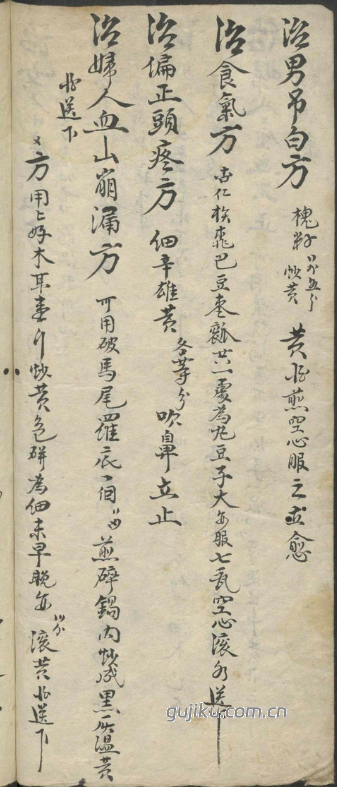 治男吊白方 槐籽炒黄 黄酒煎空心服之立愈
治食氣方 杏仁核桃巴豆枣瓤共一處為丸豆子大每服七瓦空心滚水送下
治偏正頭疼方 细辛雄黄各等分吹鼻立止
治婦人血山崩漏方 可用破馬尾羅底一個煎碎鍋内炒成黑灰温黄
酒送下
又方用上好木耳壹斤炒黄色研為细末早晚每滚黄酒送下
gujiku.com.cn